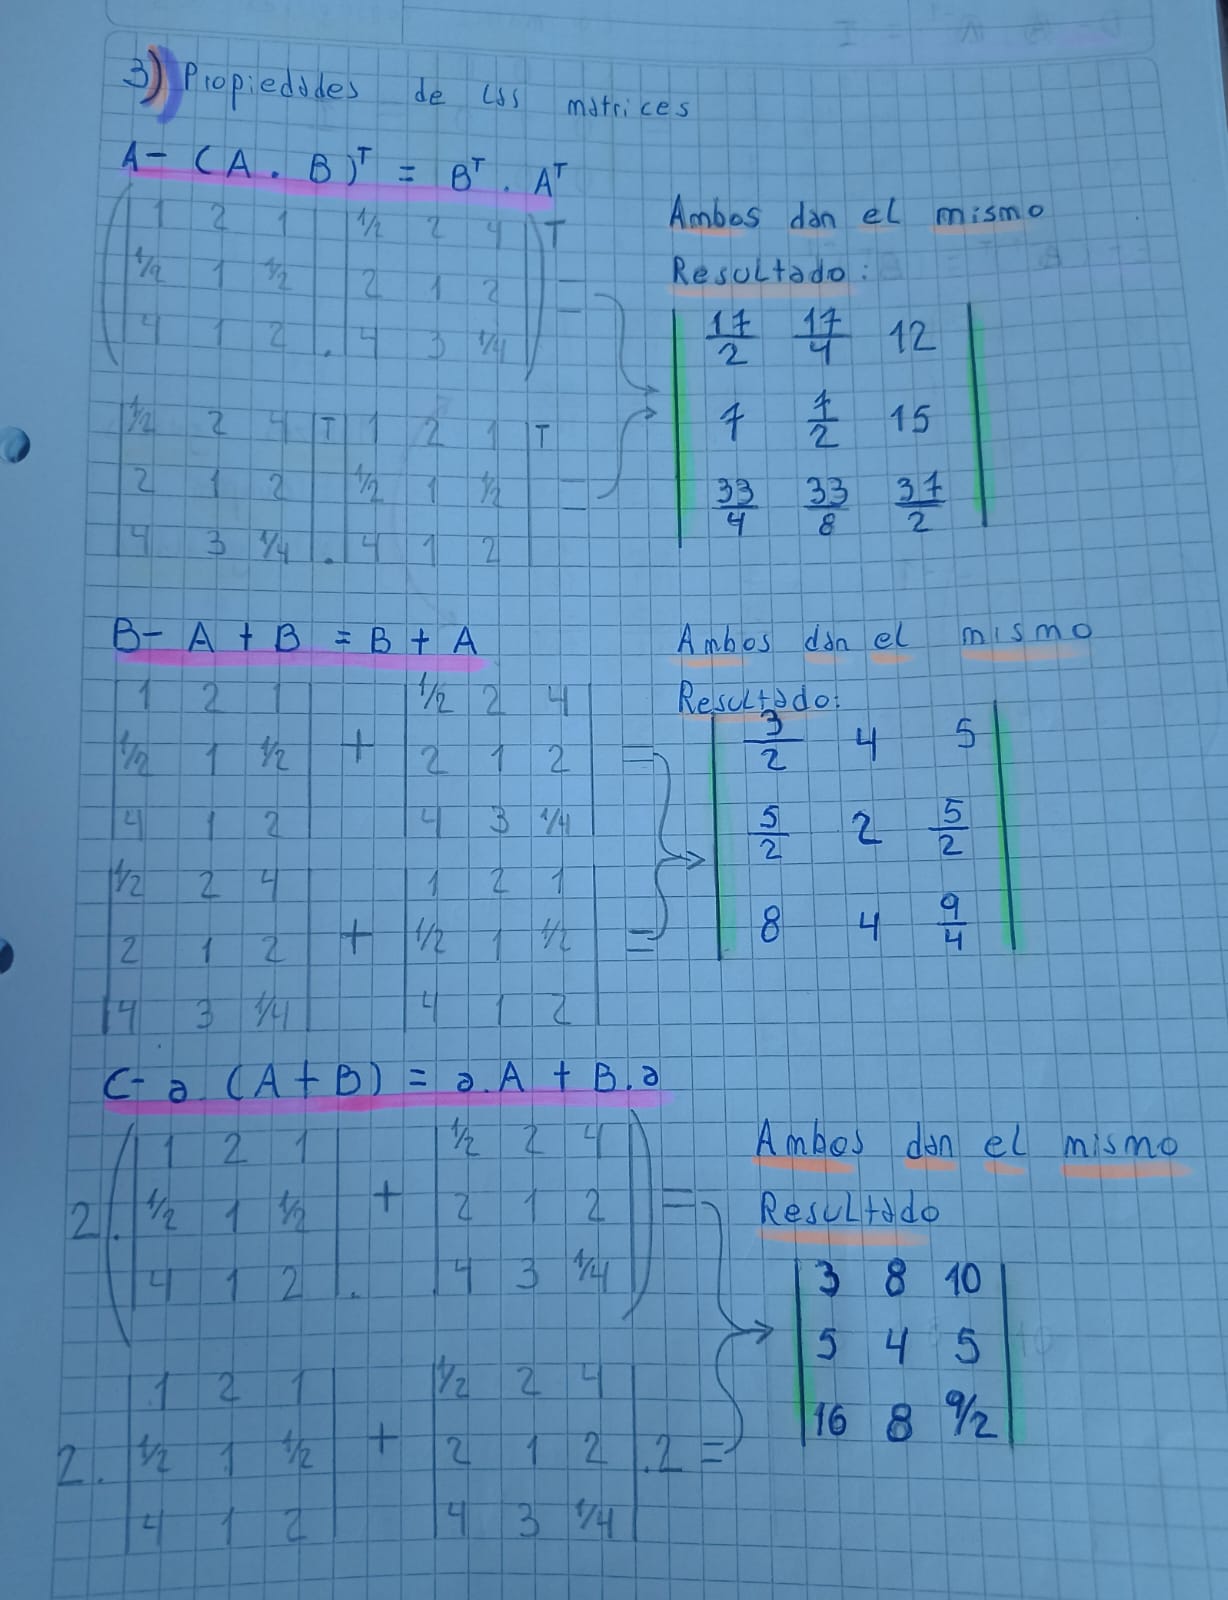 3) Propiedades de las matrices
A- (A . B)ᵀ = Bᵀ . Aᵀ
1 2 1 1/2 2 4 T
1/2 1 1/2 2 1 2 =
4 1 2 . 4 3 1/4
1/2 2 4 T 1 2 1 T
2 1 2 1/2 1 1/2 =
4 3 1/4 . 4 1 2
Ambos dan el mismo
Resultado:
17/2 17/4 12
7 7/2 15
33/4 33/8 37/2
B- A + B = B + A
1 2 1 1/2 2 4
1/2 1 1/2 + 2 1 2 =
4 1 2 4 3 1/4
1/2 2 4 1 2 1
2 1 2 + 1/2 1 1/2 =
4 3 1/4 4 1 2
Ambos dan el mismo
Resultado:
3/2 4 5
5/2 2 5/2
8 4 9/4
C- a (A + B) = a.A + B.a
1 2 1 1/2 2 4
2. 1/2 1 1/2 + 2 1 2 =
4 1 2 . 4 3 1/4
1 2 1 1/2 2 4
2. 1/2 1 1/2 + 2 1 2 .2 =
4 1 2 4 3 1/4
Ambos dan el mismo
Resultado
3 8 10
5 4 5
16 8 9/2